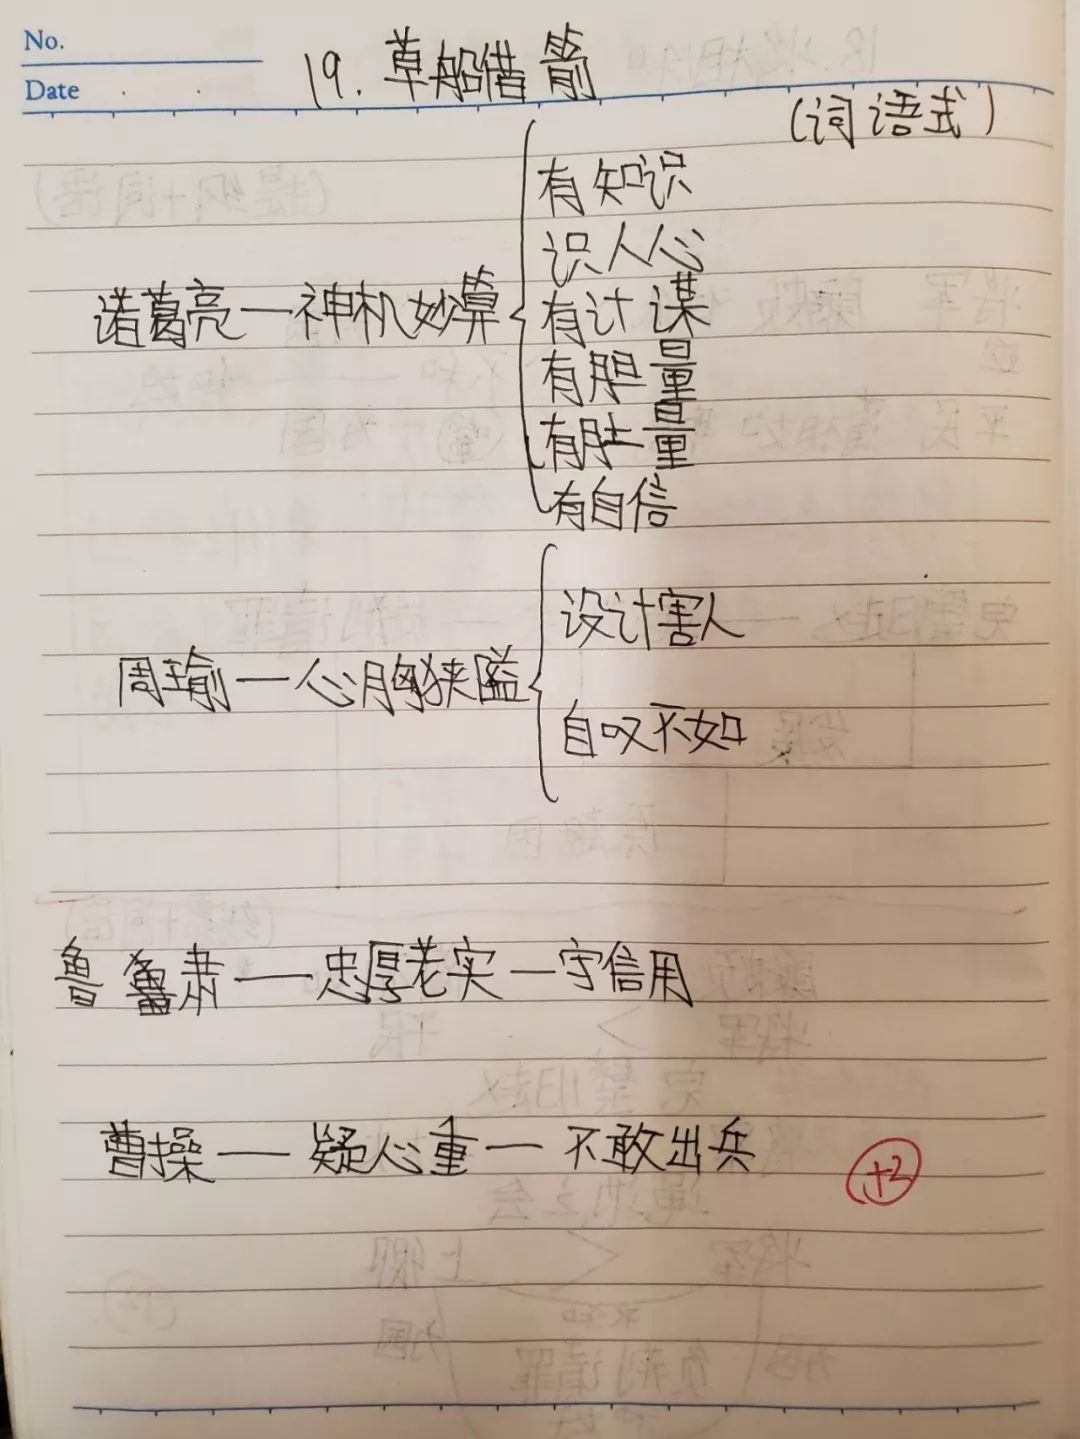 No.
Date
19. 草船借箭
(词语式)
有知识
识人心
诸葛亮—神机妙算
有计谋
有胆量
有肚量
有自信
设计害人
周瑜—心胸狭隘
自叹不如
鲁 肃—忠厚老实—守信用
曹操—疑心重—不敢出兵
+2